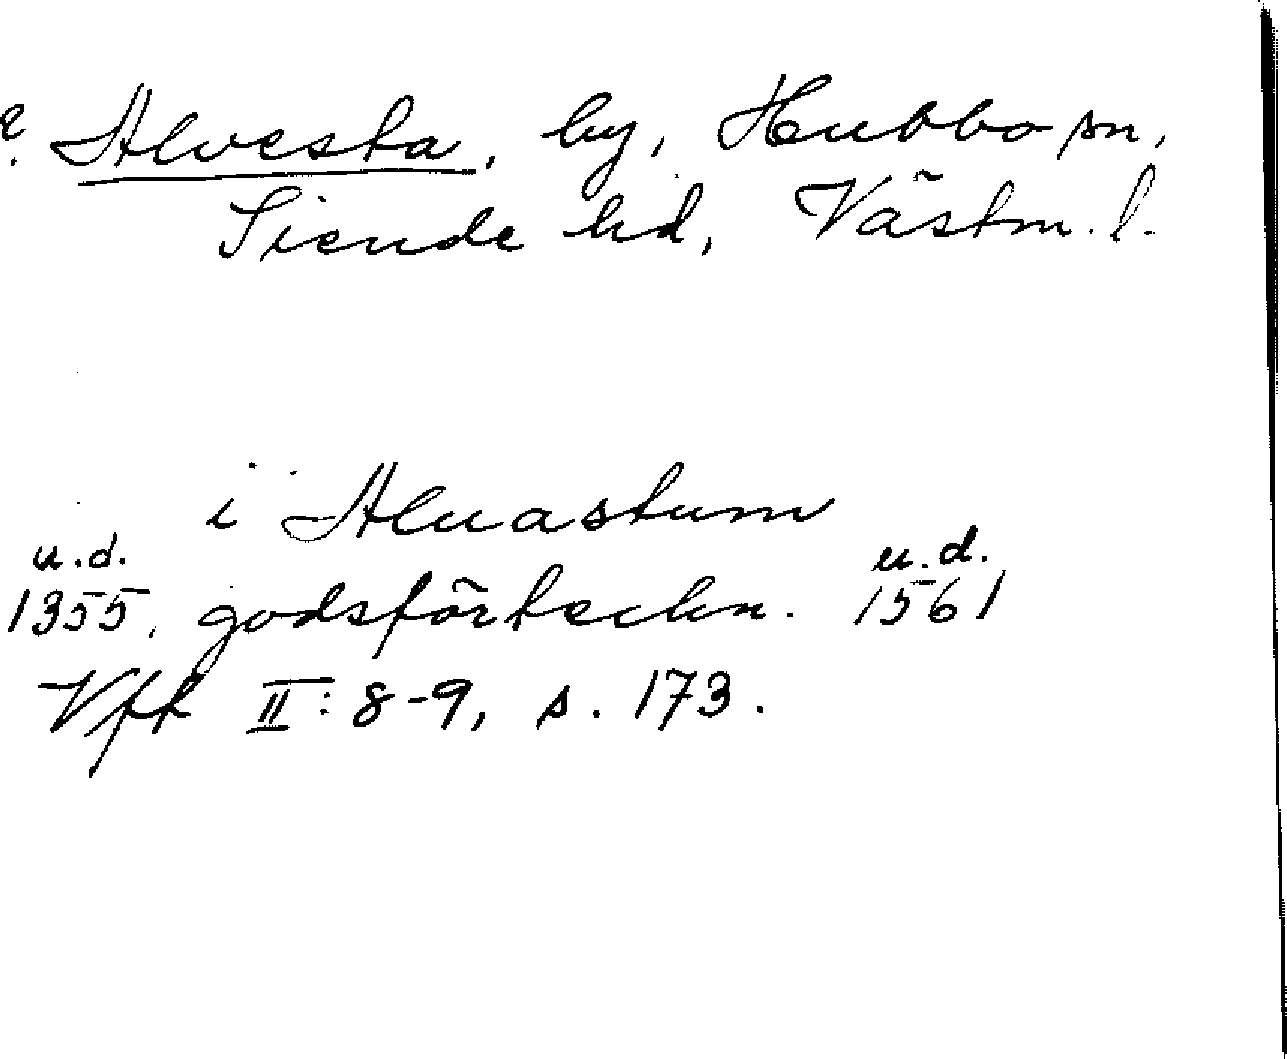 Alvesta, by, Hubbo sn,
Siende hd, Västm. l.
i Aluastum
u.d. u.d.
1355, godsförteckn. 1561
Vfk II: 8-9, s. 173.